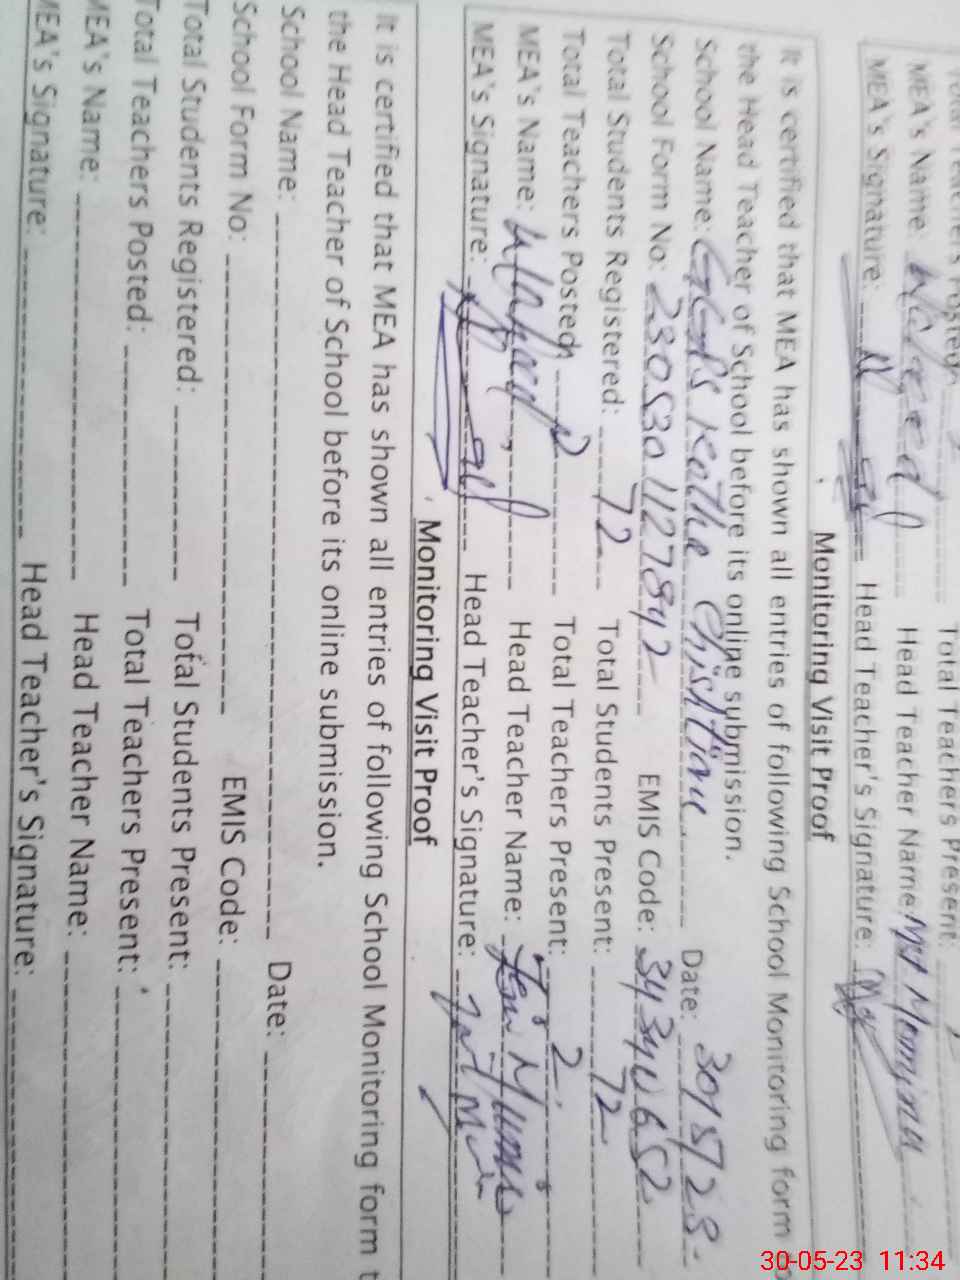 MEA's Name: Waheed Head Teacher Name:
MEA's Signature: Head Teacher's Signature:
Monitoring Visit Proof
It is certified that MEA has shown all entries of following School Monitoring form to
the Head Teacher of School before its online submission.
School Name: Date: 30/5/23.
School Form No: 2305301127842 EMIS Code:
Total Students Registered: 72 Total Students Present: 72
Total Teachers Posted: 2 Total Teachers Present: 2
MEA's Name: Waheed Head Teacher Name:
MEA's Signature: Head Teacher's Signature:
Monitoring Visit Proof
It is certified that MEA has shown all entries of following School Monitoring form t
the Head Teacher of School before its online submission.
School Name: Date:
School Form No: EMIS Code:
Total Students Registered: Total Students Present:
Total Teachers Posted: Total Teachers Present:
MEA's Name: Head Teacher Name:
MEA's Signature: Head Teacher's Signature:
30-05-23 11:34